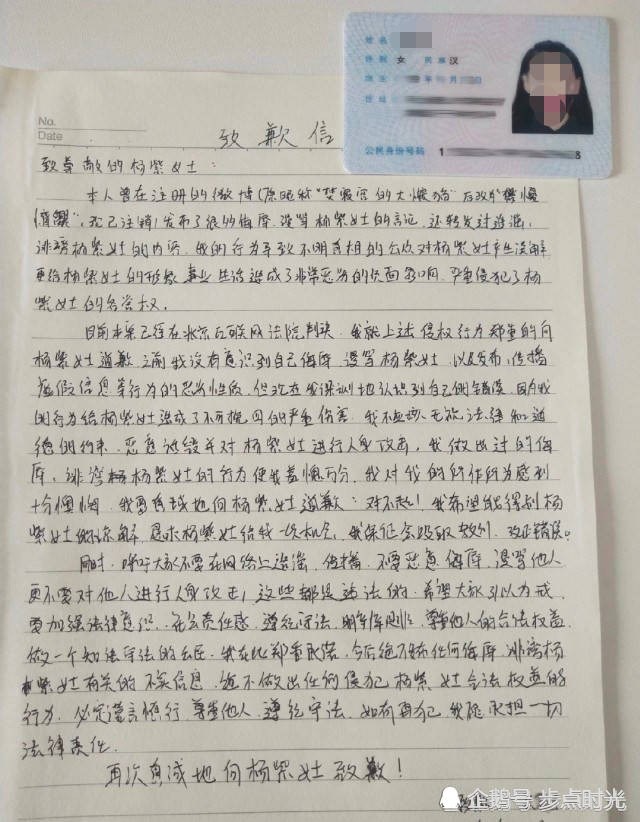 姓名
性别 女 民族 汉
出生 年 月
住址
公民身份号码 1 8
No.
Date
致歉信
致尊敬的杨紫女士:
本人曾在注册的微博(原昵称"樊霄宫的大懒猫"后改
，现已注销)发布了很多侮辱、谩骂杨紫女士的言论，还转发过造谣、
诽谤杨紫女士的内容，我的行为导致不明真相的公众对杨紫女士产生误解
更给杨紫女士的形象、事业、生活造成了非常恶劣的负面影响，严重侵犯了杨
紫女士的名誉权。
目前本案已经在北京互联网法院判决，我就上述侵权行为郑重的向
杨紫女士道歉，之前我没有意识到自己侮辱、谩骂杨紫女士，以及发布、传播
虚假信息等行为的恶劣性质，但现在我深刻地认识到自己的错误，因为我
的行为给杨紫女士造成了不可挽回的严重伤害，我不应该无视法律和道
德的约束，恶意诋毁并对杨紫女士进行人身攻击，我做出过的侮
辱、诽谤杨紫女士的行为使我羞愧万分，我对我的所作所为感到
十分懊悔，我要真诚地向杨紫女士道歉：对不起！我希望能得到杨
紫女士的谅解，恳求杨紫女士给我一次机会，我保证会吸取教训，改正错误。
同时，呼吁大家不要在网络上造谣、传播，不要恶意侮辱、谩骂他人
更不要对他人进行人身攻击，这些都是违法的。希望大家引以为戒，
要加强法律意识、社会责任感，遵纪守法，明辨是非，尊重他人的合法权益，
做一个知法守法的公民。我在此郑重承诺，今后绝不发布任何侮辱、诽谤杨
紫女士有关的不实信息，绝不做出任何侵犯杨紫女士合法权益的
行为，必定谨言慎行，尊重他人，遵纪守法，如有再犯，我愿承担一切
法律责任。
再次真诚地向杨紫女士致歉！
企鹅号 步点时光